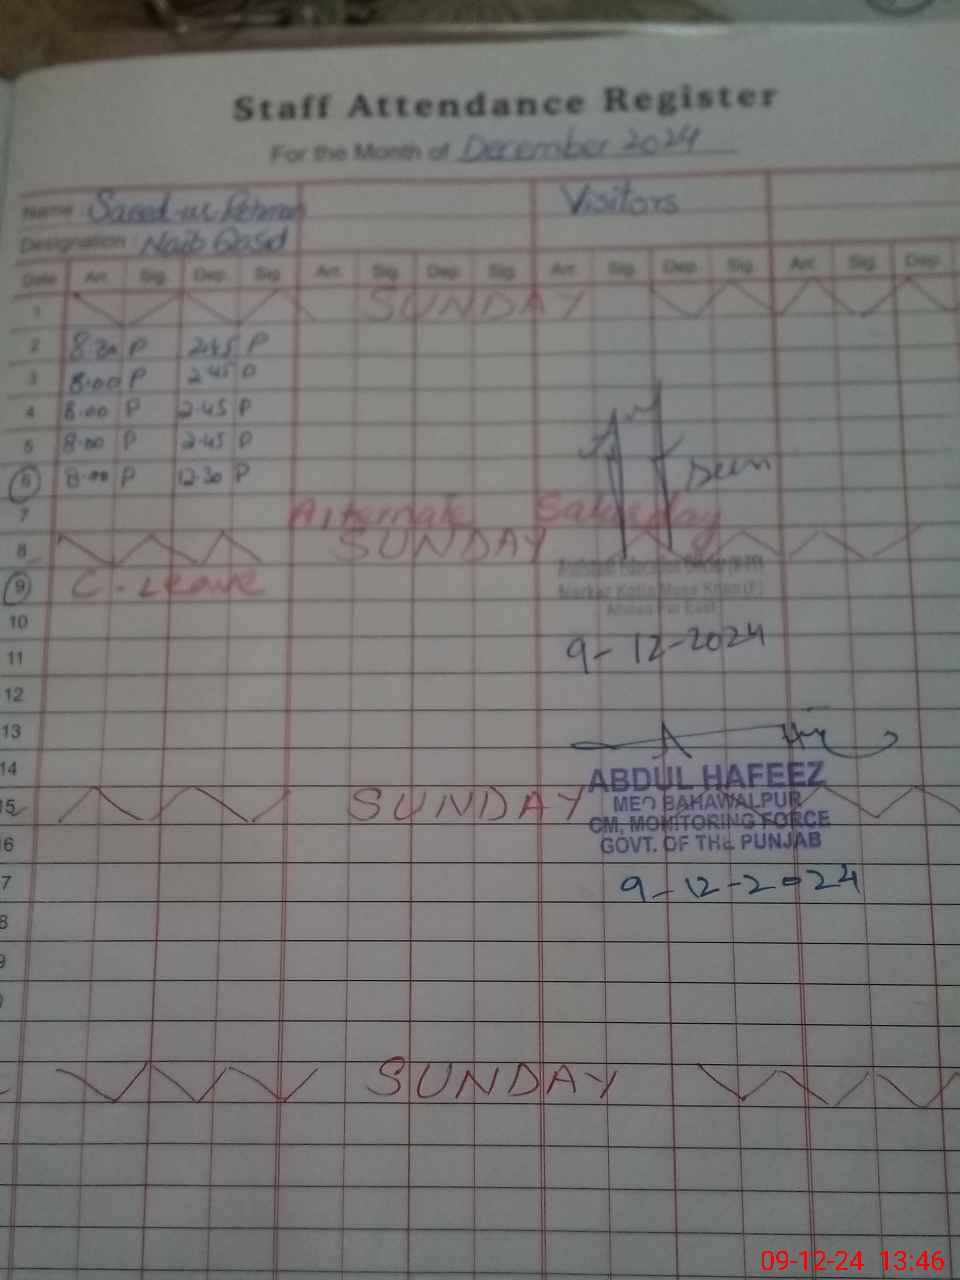 Staff Attendance Register
For the Month of December 2024
Name Saeed-ur-Rehman Visitors
Designation Naib Qasid
Date Arr. Sig. Dep. Sig. Arr. Sig. Dep. Sig. Arr. Sig. Dep. Sig. Arr. Sig. Dep.
1 SUNDAY
2 8.30 P 2.45 P
3 8.00 P 2.45 P
4 8.00 P 2.45 P
5 8.00 P 2.45 P
6 8.00 P 12.30 P
7 Alternate Saturday
8 SUNDAY
9 C-Leave
10
9-12-2024
11
12
13
14
ABDUL HAFEEZ
5 SUNDAY
MEO BAHAWALPUR
CM, MONITORING FORCE
6 GOVT. OF THE PUNJAB
7 9-12-2024
8
9
SUNDAY
09-12-24 13:46